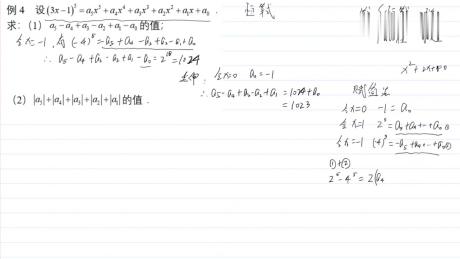 例 4 设 (3x−1)⁵ = a₅x⁵ + a₄x⁴ + a₃x³ + a₂x² + a₁x + a₀ .
恒等式
求：(1) a₅ − a₄ + a₃ − a₂ + a₁ − a₀ 的值；
令x=-1, 有 (-4)⁵ = -a₅+a₄-a₃+a₂-a₁+a₀
∴ a₅-a₄+a₃-a₂+a₁-a₀=2¹⁰=1024
令x=0 a₀=-1
∴ a₅-a₄+a₃-a₂+a₁ =1024+a₀
=1023
(2) |a₅|+|a₄|+|a₃|+|a₂|+|a₁| 的值 .
赋值法
令x=0 -1=a₀
令x=1 2⁵=a₅+a₄+⋯+a₀ ①
令x=-1 (-4)⁵=-a₅+a₄-⋯+a₀②
①+②
2⁵-4⁵=2(a₄